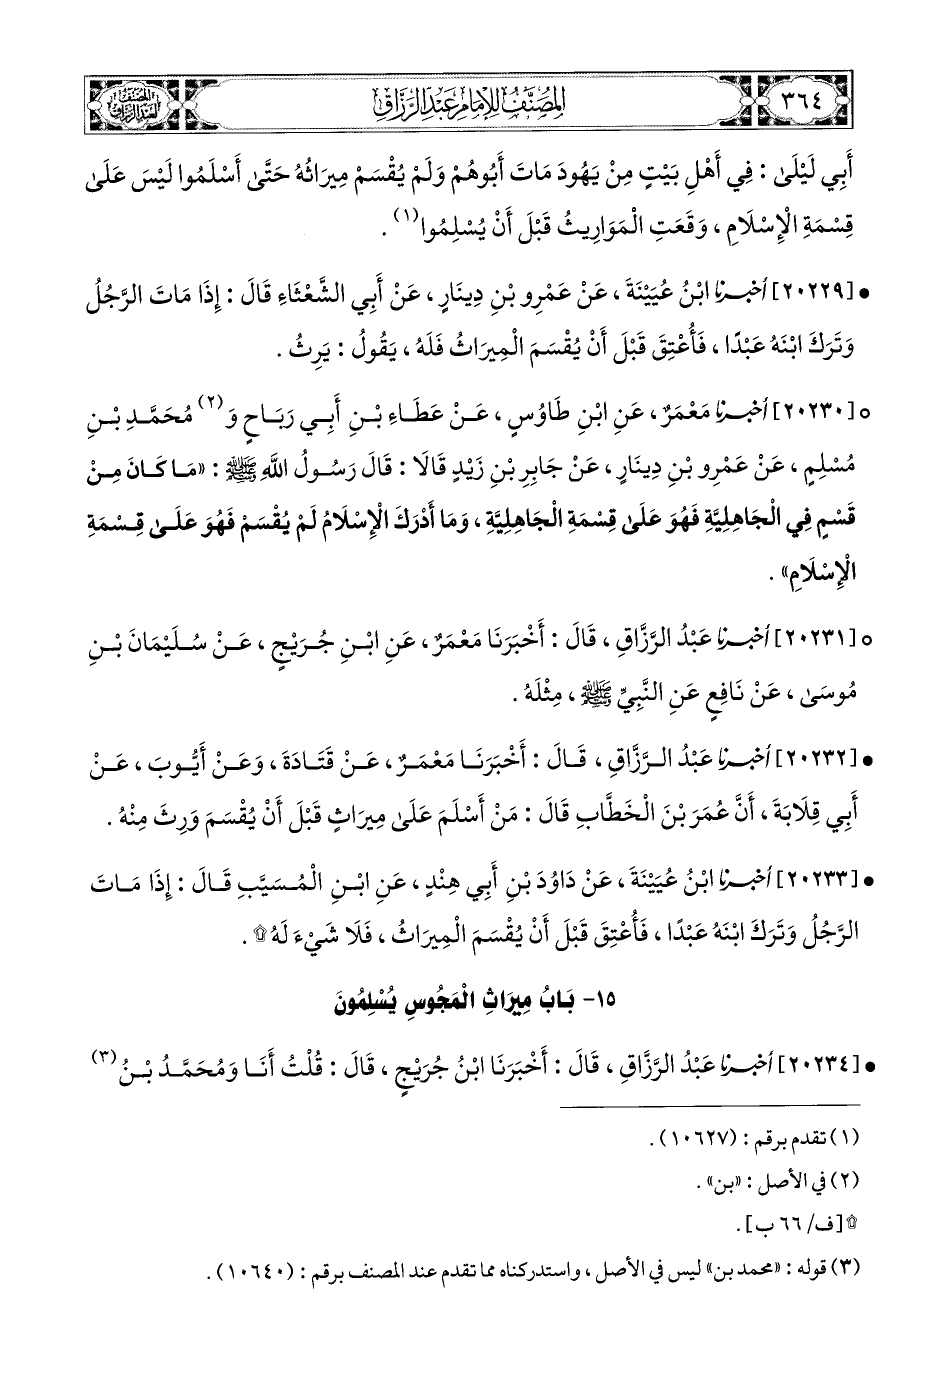 ٣٦٤
المصنف للإمام عبد الرزاق
المصنف
لعبد الرزاق
أَبِي لَيْلَى : فِي أَهْلِ بَيْتٍ مِنْ يَهُودَ مَاتَ أَبُوهُمْ وَلَمْ يُقْسَمْ مِيرَاثُهُ حَتَّى أَسْلَمُوا لَيْسَ عَلَى
قِسْمَةِ الْإِسْلَامِ ، وَقَعَتِ الْمَوَارِيثُ قَبْلَ أَنْ يُسْلِمُوا(١) .
• [٢٠٢٢٩] أخبرنا ابْنُ عُيَيْنَةَ ، عَنْ عَمْرِو بْنِ دِينَارٍ ، عَنْ أَبِي الشَّعْثَاءِ قَالَ : إِذَا مَاتَ الرَّجُلُ
وَتَرَكَ ابْنَهُ عَبْدًا ، فَأُعْتِقَ قَبْلَ أَنْ يُقْسَمَ الْمِيرَاثُ فَلَهُ ، يَقُولُ : يَرِثُ .
○ [٢٠٢٣٠] أخبرنا مَعْمَرٌ ، عَنِ ابْنِ طَاوُسٍ ، عَنْ عَطَاءِ بْنِ أَبِي رَبَاحٍ وَ(٢) مُحَمَّدِ بْنِ
مُسْلِمٍ ، عَنْ عَمْرِو بْنِ دِينَارٍ ، عَنْ جَابِرِ بْنِ زَيْدٍ قَالَا : قَالَ رَسُولُ اللَّهِ ﷺ : «مَا كَانَ مِنْ
قَسْمٍ فِي الْجَاهِلِيَّةِ فَهُوَ عَلَى قِسْمَةِ الْجَاهِلِيَّةِ ، وَمَا أَدْرَكَ الْإِسْلَامُ لَمْ يُقْسَمْ فَهُوَ عَلَى قِسْمَةِ
الْإِسْلَامِ» .
○ [٢٠٢٣١] أخبرنا عَبْدُ الرَّزَّاقِ ، قَالَ : أَخْبَرَنَا مَعْمَرٌ ، عَنِ ابْنِ جُرَيْجٍ ، عَنْ سُلَيْمَانَ بْنِ
مُوسَى ، عَنْ نَافِعٍ عَنِ النَّبِيِّ ﷺ ، مِثْلَهُ .
• [٢٠٢٣٢] أخبرنا عَبْدُ الرَّزَّاقِ ، قَالَ : أَخْبَرَنَا مَعْمَرٌ ، عَنْ قَتَادَةَ ، وَعَنْ أَيُّوبَ ، عَنْ
أَبِي قِلَابَةَ ، أَنَّ عُمَرَ بْنَ الْخَطَّابِ قَالَ : مَنْ أَسْلَمَ عَلَى مِيرَاثٍ قَبْلَ أَنْ يُقْسَمَ وَرِثَ مِنْهُ .
• [٢٠٢٣٣] أخبرنا ابْنُ عُيَيْنَةَ ، عَنْ دَاوُدَ بْنِ أَبِي هِنْدٍ ، عَنِ ابْنِ الْمُسَيَّبِ قَالَ : إِذَا مَاتَ
الرَّجُلُ وَتَرَكَ ابْنَهُ عَبْدًا ، فَأُعْتِقَ قَبْلَ أَنْ يُقْسَمَ الْمِيرَاثُ ، فَلَا شَيْءَ لَهُ۩ .
١٥- بَابُ مِيرَاثِ الْمَجُوسِ يُسْلِمُونَ
• [٢٠٢٣٤] أخبرنا عَبْدُ الرَّزَّاقِ ، قَالَ : أَخْبَرَنَا ابْنُ جُرَيْجٍ ، قَالَ : قُلْتُ أَنَا وَمُحَمَّدُ بْنُ(٣)
(١) تقدم برقم : (١٠٦٢٧) .
(٢) في الأصل : «بن» .
۩ [ف/ ٦٦ ب] .
(٣) قوله : «محمد بن» ليس في الأصل ، واستدركناه مما تقدم عند المصنف برقم : (١٠٦٤٠) .